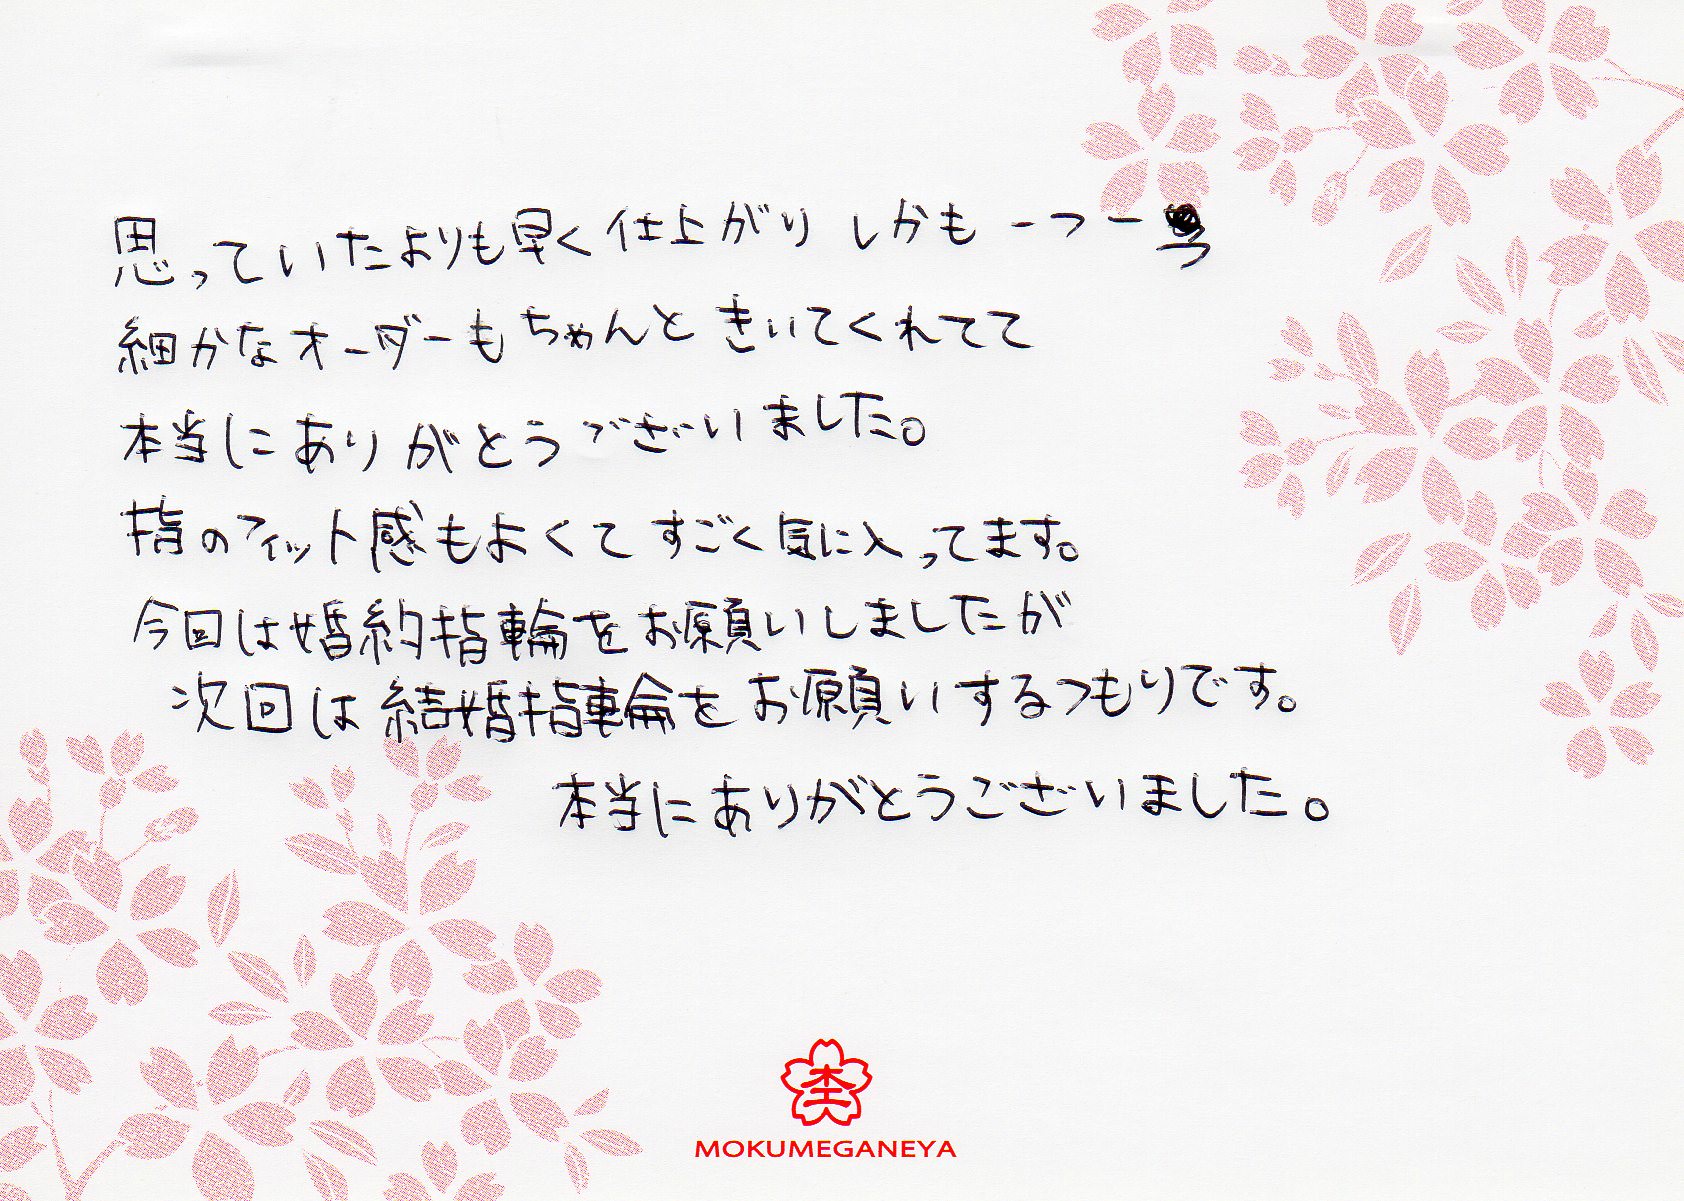 思っていたよりも早く仕上がり しかも 一つ一つ
細かなオーダーもちゃんと きいてくれてて
本当にありがとうございました。
指のフィット感もよくて すごく気に入ってます。
今回は婚約指輪をお願いしましたが
次回は結婚指輪をお願いするつもりです。
本当にありがとうございました。
MOKUMEGANEYA